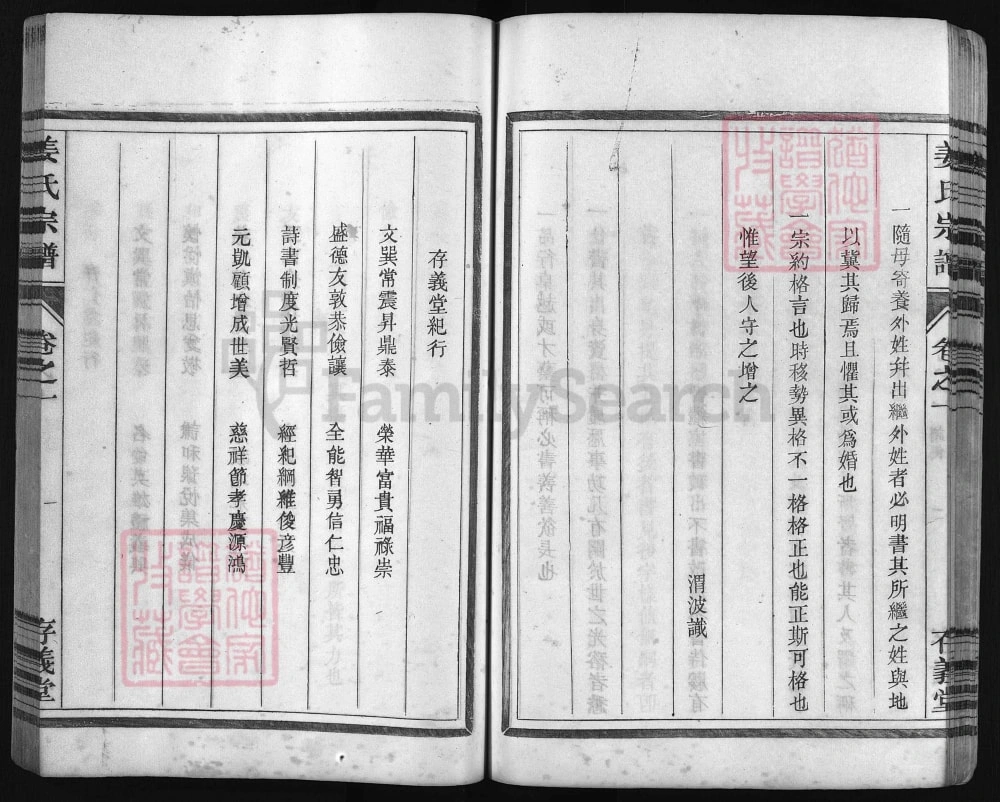 姜氏宗譜 卷之一 存義堂
一隨母寄養外姓幷出繼外姓者必明書其所繼之姓與地
以冀其歸焉且懼其或爲婚也
一宗約格言也時移勢異格不一格格正也能正斯可格也
惟望後人守之增之
渭波識
存義堂紀行
文巽常震昇鼎泰 榮華富貴福祿崇
盛德友敦恭儉讓 全能智勇信仁忠
詩書制度光賢哲 經紀綱維俊彥豐
元凱顧增成世美 慈祥節孝慶源鴻
姜氏宗譜 卷之一 一 存義堂
FamilySearch